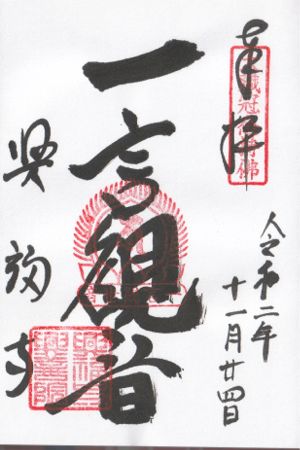 奉拝
令和二年
十一月廿四日
一言觀音
興福寺